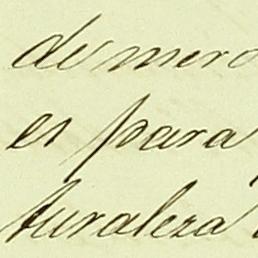 de mero
es para
turaleza